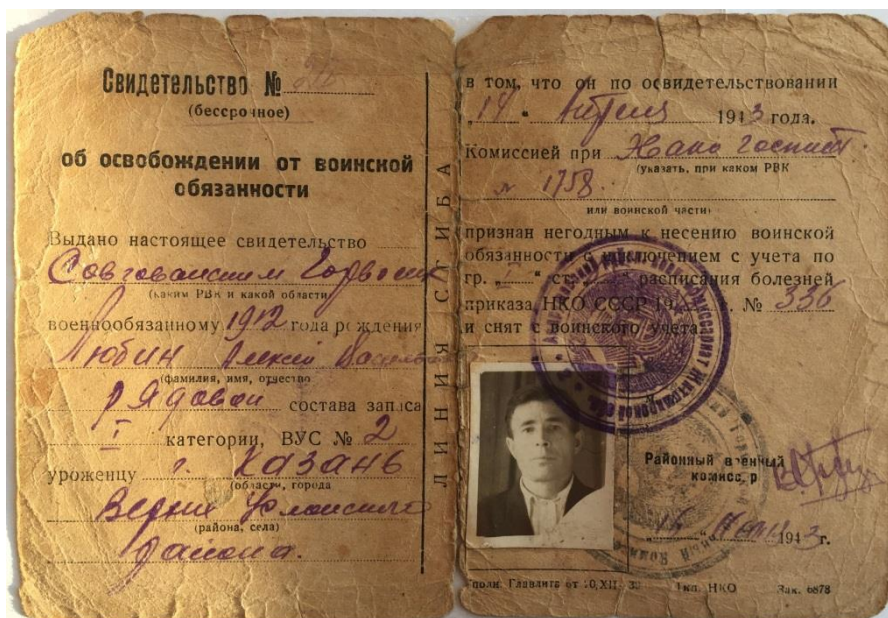 Свидетельство №
(бессрочное)
об освобождении от воинской
обязанности
Выдано настоящее свидетельство
Совгованским Горвоенк
(каким РВК и какой области)
военнообязанному 1912 года рождения
Любин Алексей
(фамилия, имя, отчество
рядовой состава запаса
I категории, ВУС № 2
уроженцу г. Казань
(области, города
Верхне Услонского
(района, села)
района.
ЛИНИЯ СГИБА
в том, что он по освидетельствовании
"14" Апреля 1943 года.
Комиссией при Эвако госпит.
(указать, при каком РВК
№ 1758.
или воинской части)
признан негодным к несению воинской
обязанности с исключением с учета по
гр. „I“ ст. расписания болезней
приказа НКО СССР 19 г. № 336
и снят с воинского учета.
Районный военный
комиссар
1943 г.
Главлита от 10,XII, Тип. НКО Зак. 6878